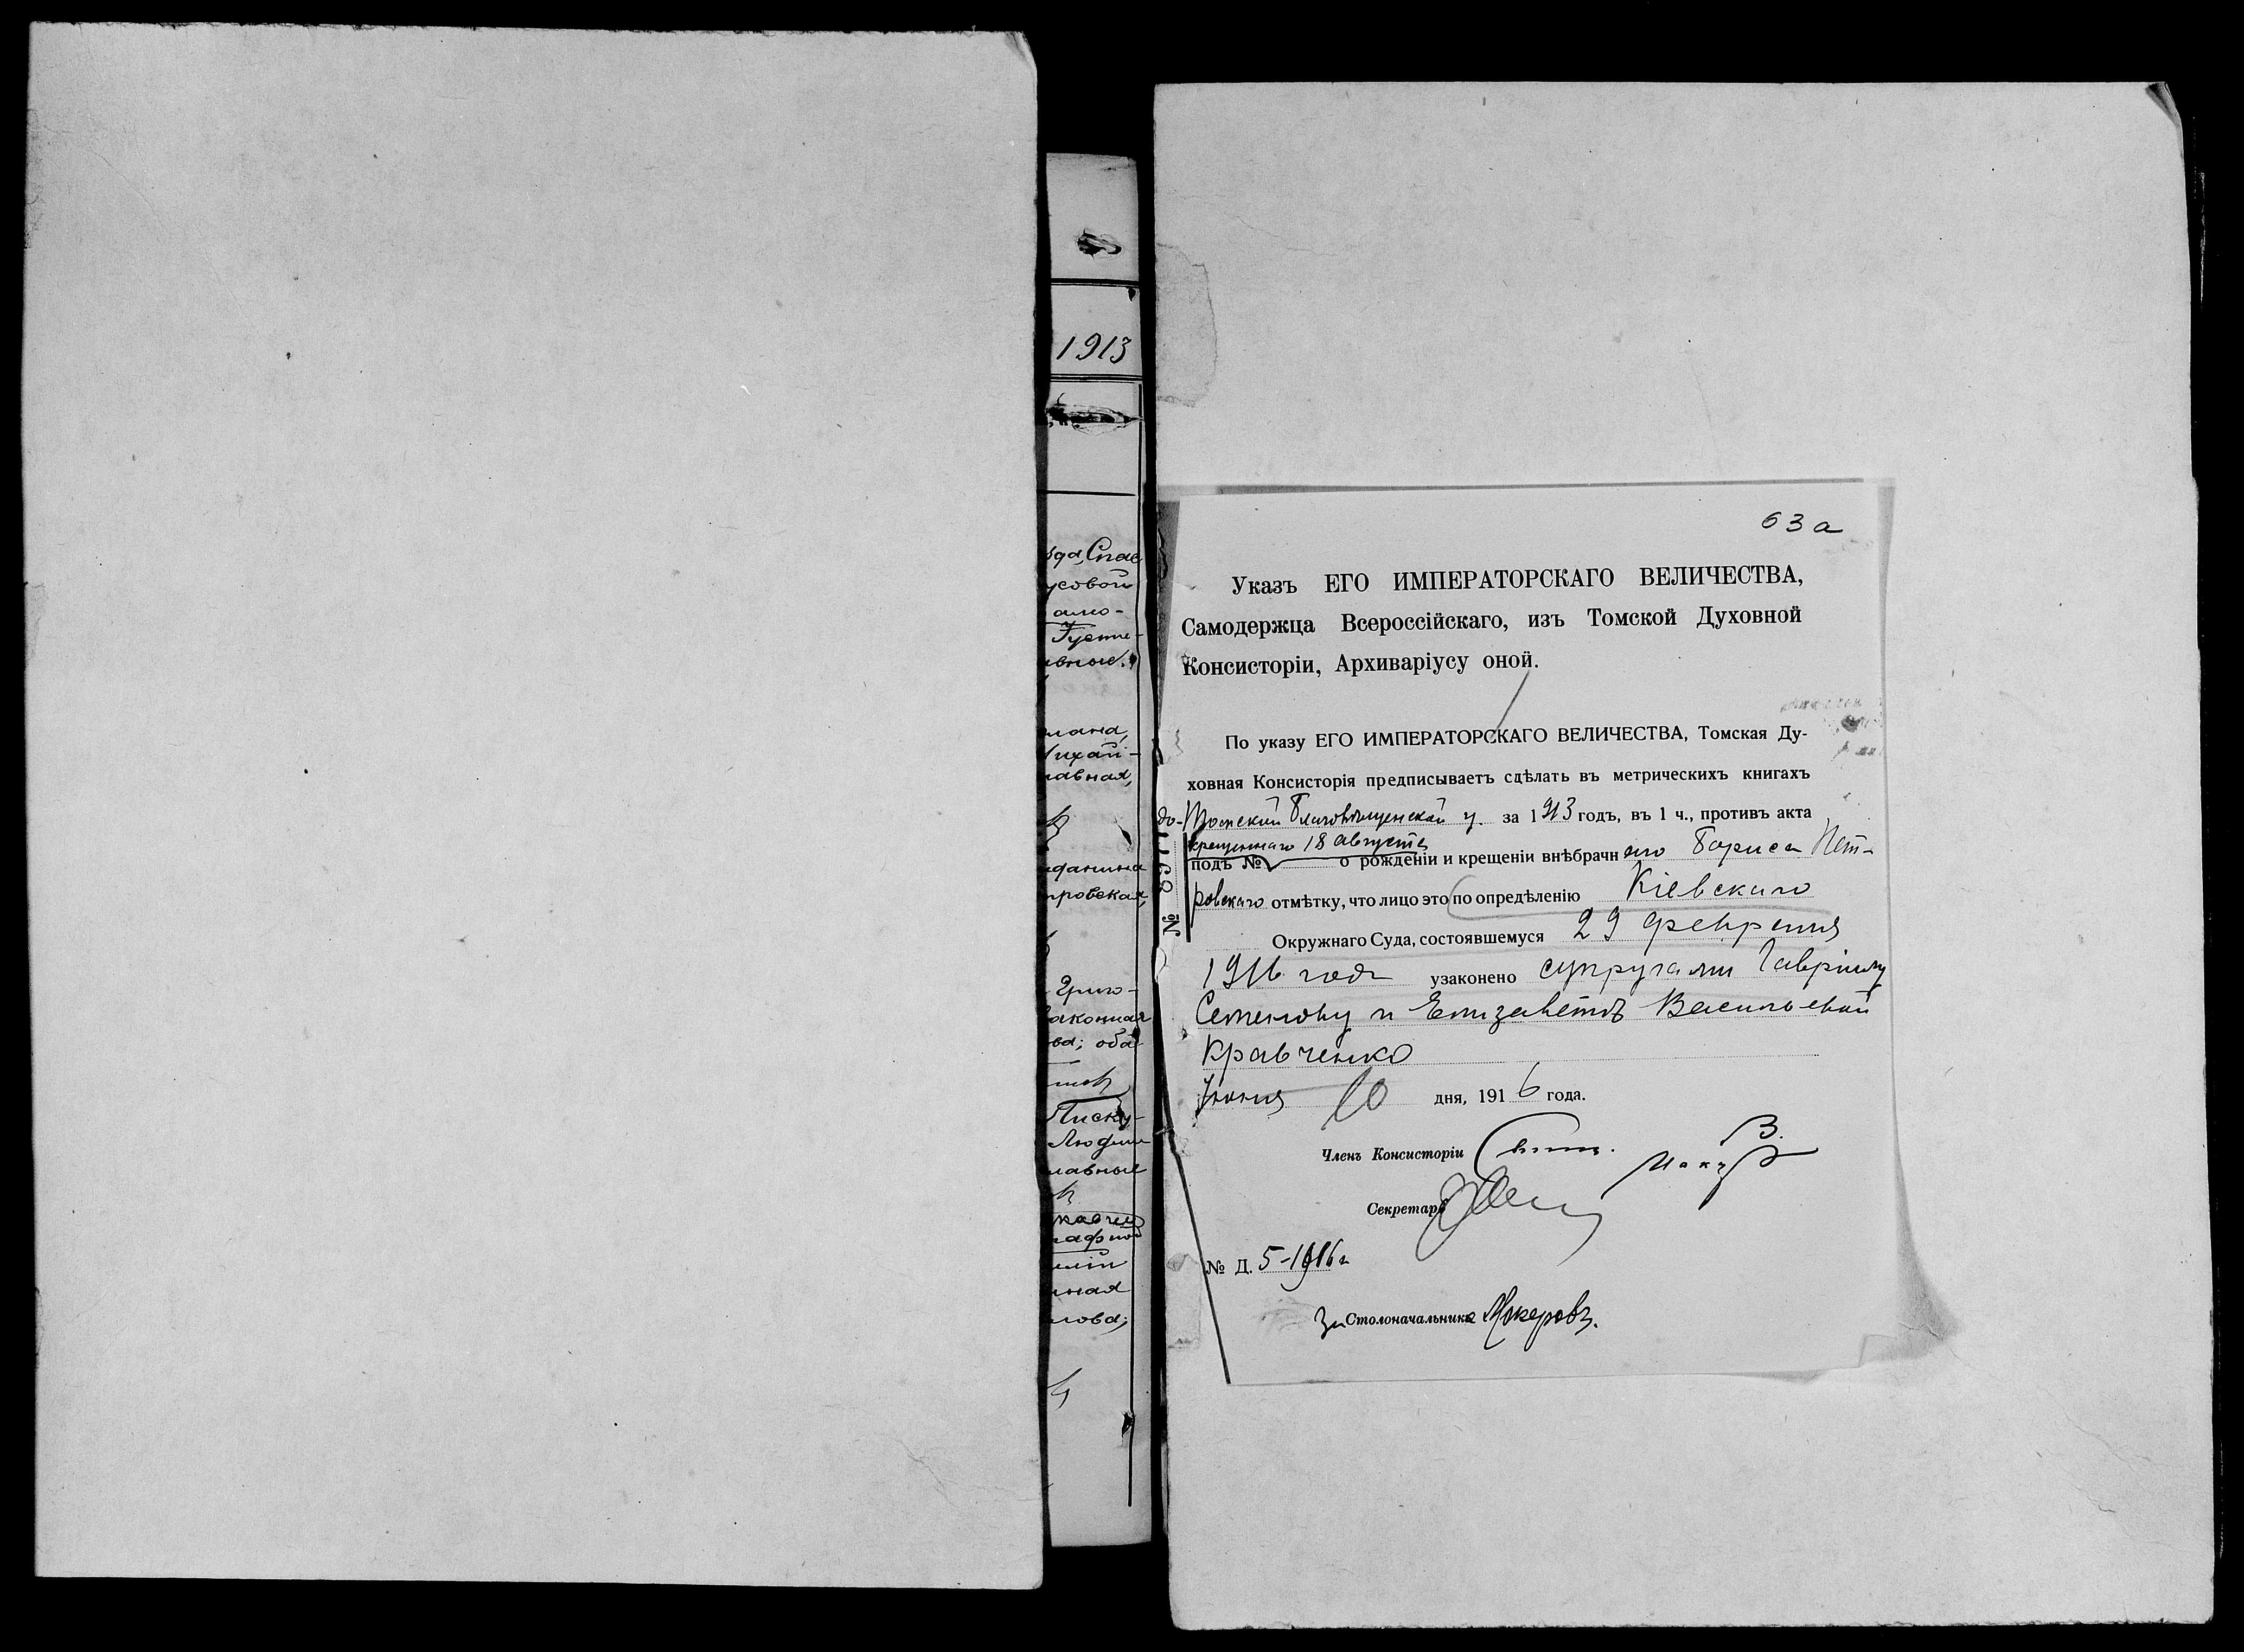 1913
ѣда, Спас
усовой
Густи-
вные.
лана,
Михай-
лавная,
жданина
тровская,
Григо-
аконная
ва; оба
Писку-
Людми
лавные
мная
лова;
63 а
Указъ ЕГО ИМПЕРАТОРСКАГО ВЕЛИЧЕСТВА,
Самодержца Всероссійскаго, изъ Томской Духовной
Консисторіи, Архиваріусу оной.
По указу ЕГО ИМПЕРАТОРСКАГО ВЕЛИЧЕСТВА, Томская Ду-
ховная Консисторія предписываетъ сдѣлать въ метрическихъ книгахъ
градо-Томской Благовѣщенской ц. за 1913 годъ, въ 1 ч., противъ акта
крещеннаго 18 августа
подъ № о рожденіи и крещеніи внѣбрачнаго Бориса Пет-
ровскаго отмѣтку, что лицо это по опредѣленію Кіевскаго
Окружнаго Суда, состоявшемуся 29 февраля
1916 года узаконено супругами Гавріилу
Семенову и Елизаветѣ Васильевой
Кравченко
Іюня 10 дня, 1916 года.
Членъ Консисторіи
Секретарь
№ Д. 5-1916 г.
За Столоначальника Макеровъ.
№ 11968